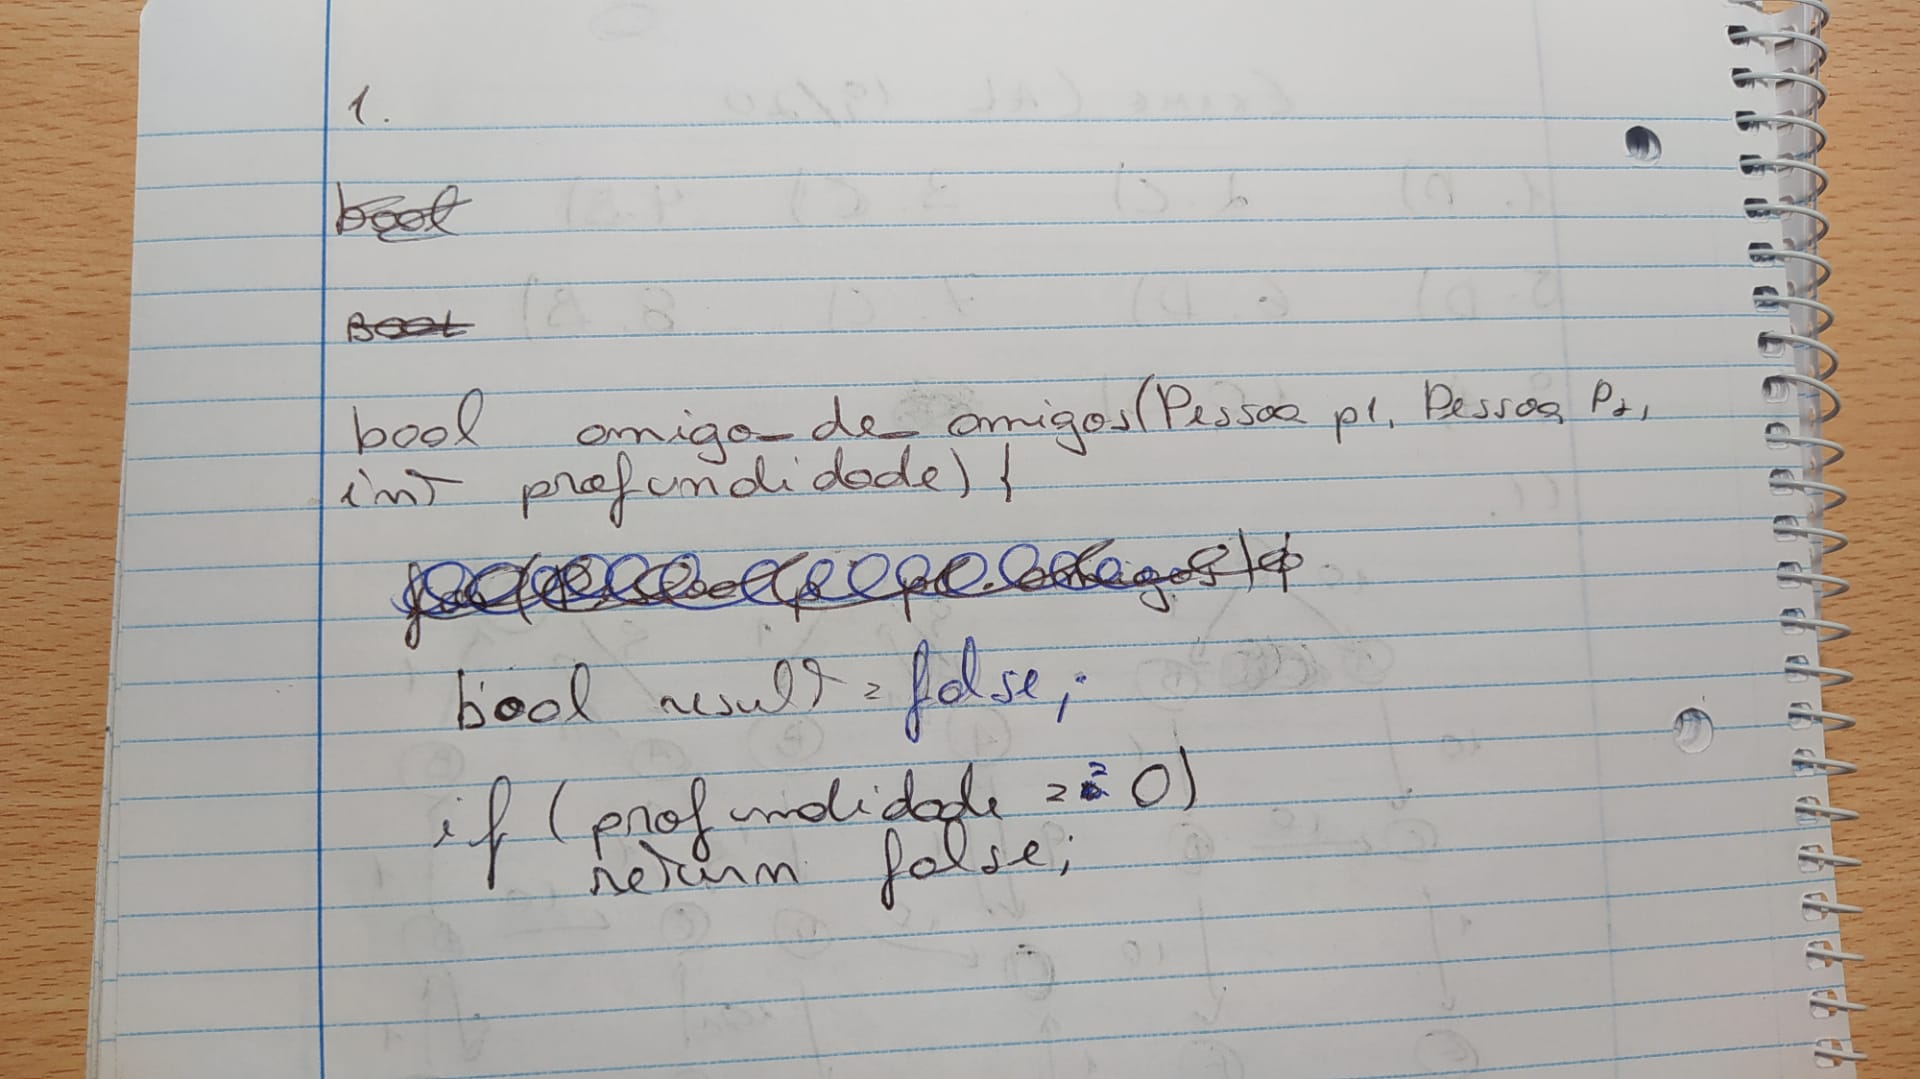 1.
bool
Bool
bool amigo_de_amigos(Pessoa p1, Pessoa P2,
int profundidade) {
bool result = false;
if (profundidade == 0)
return false;